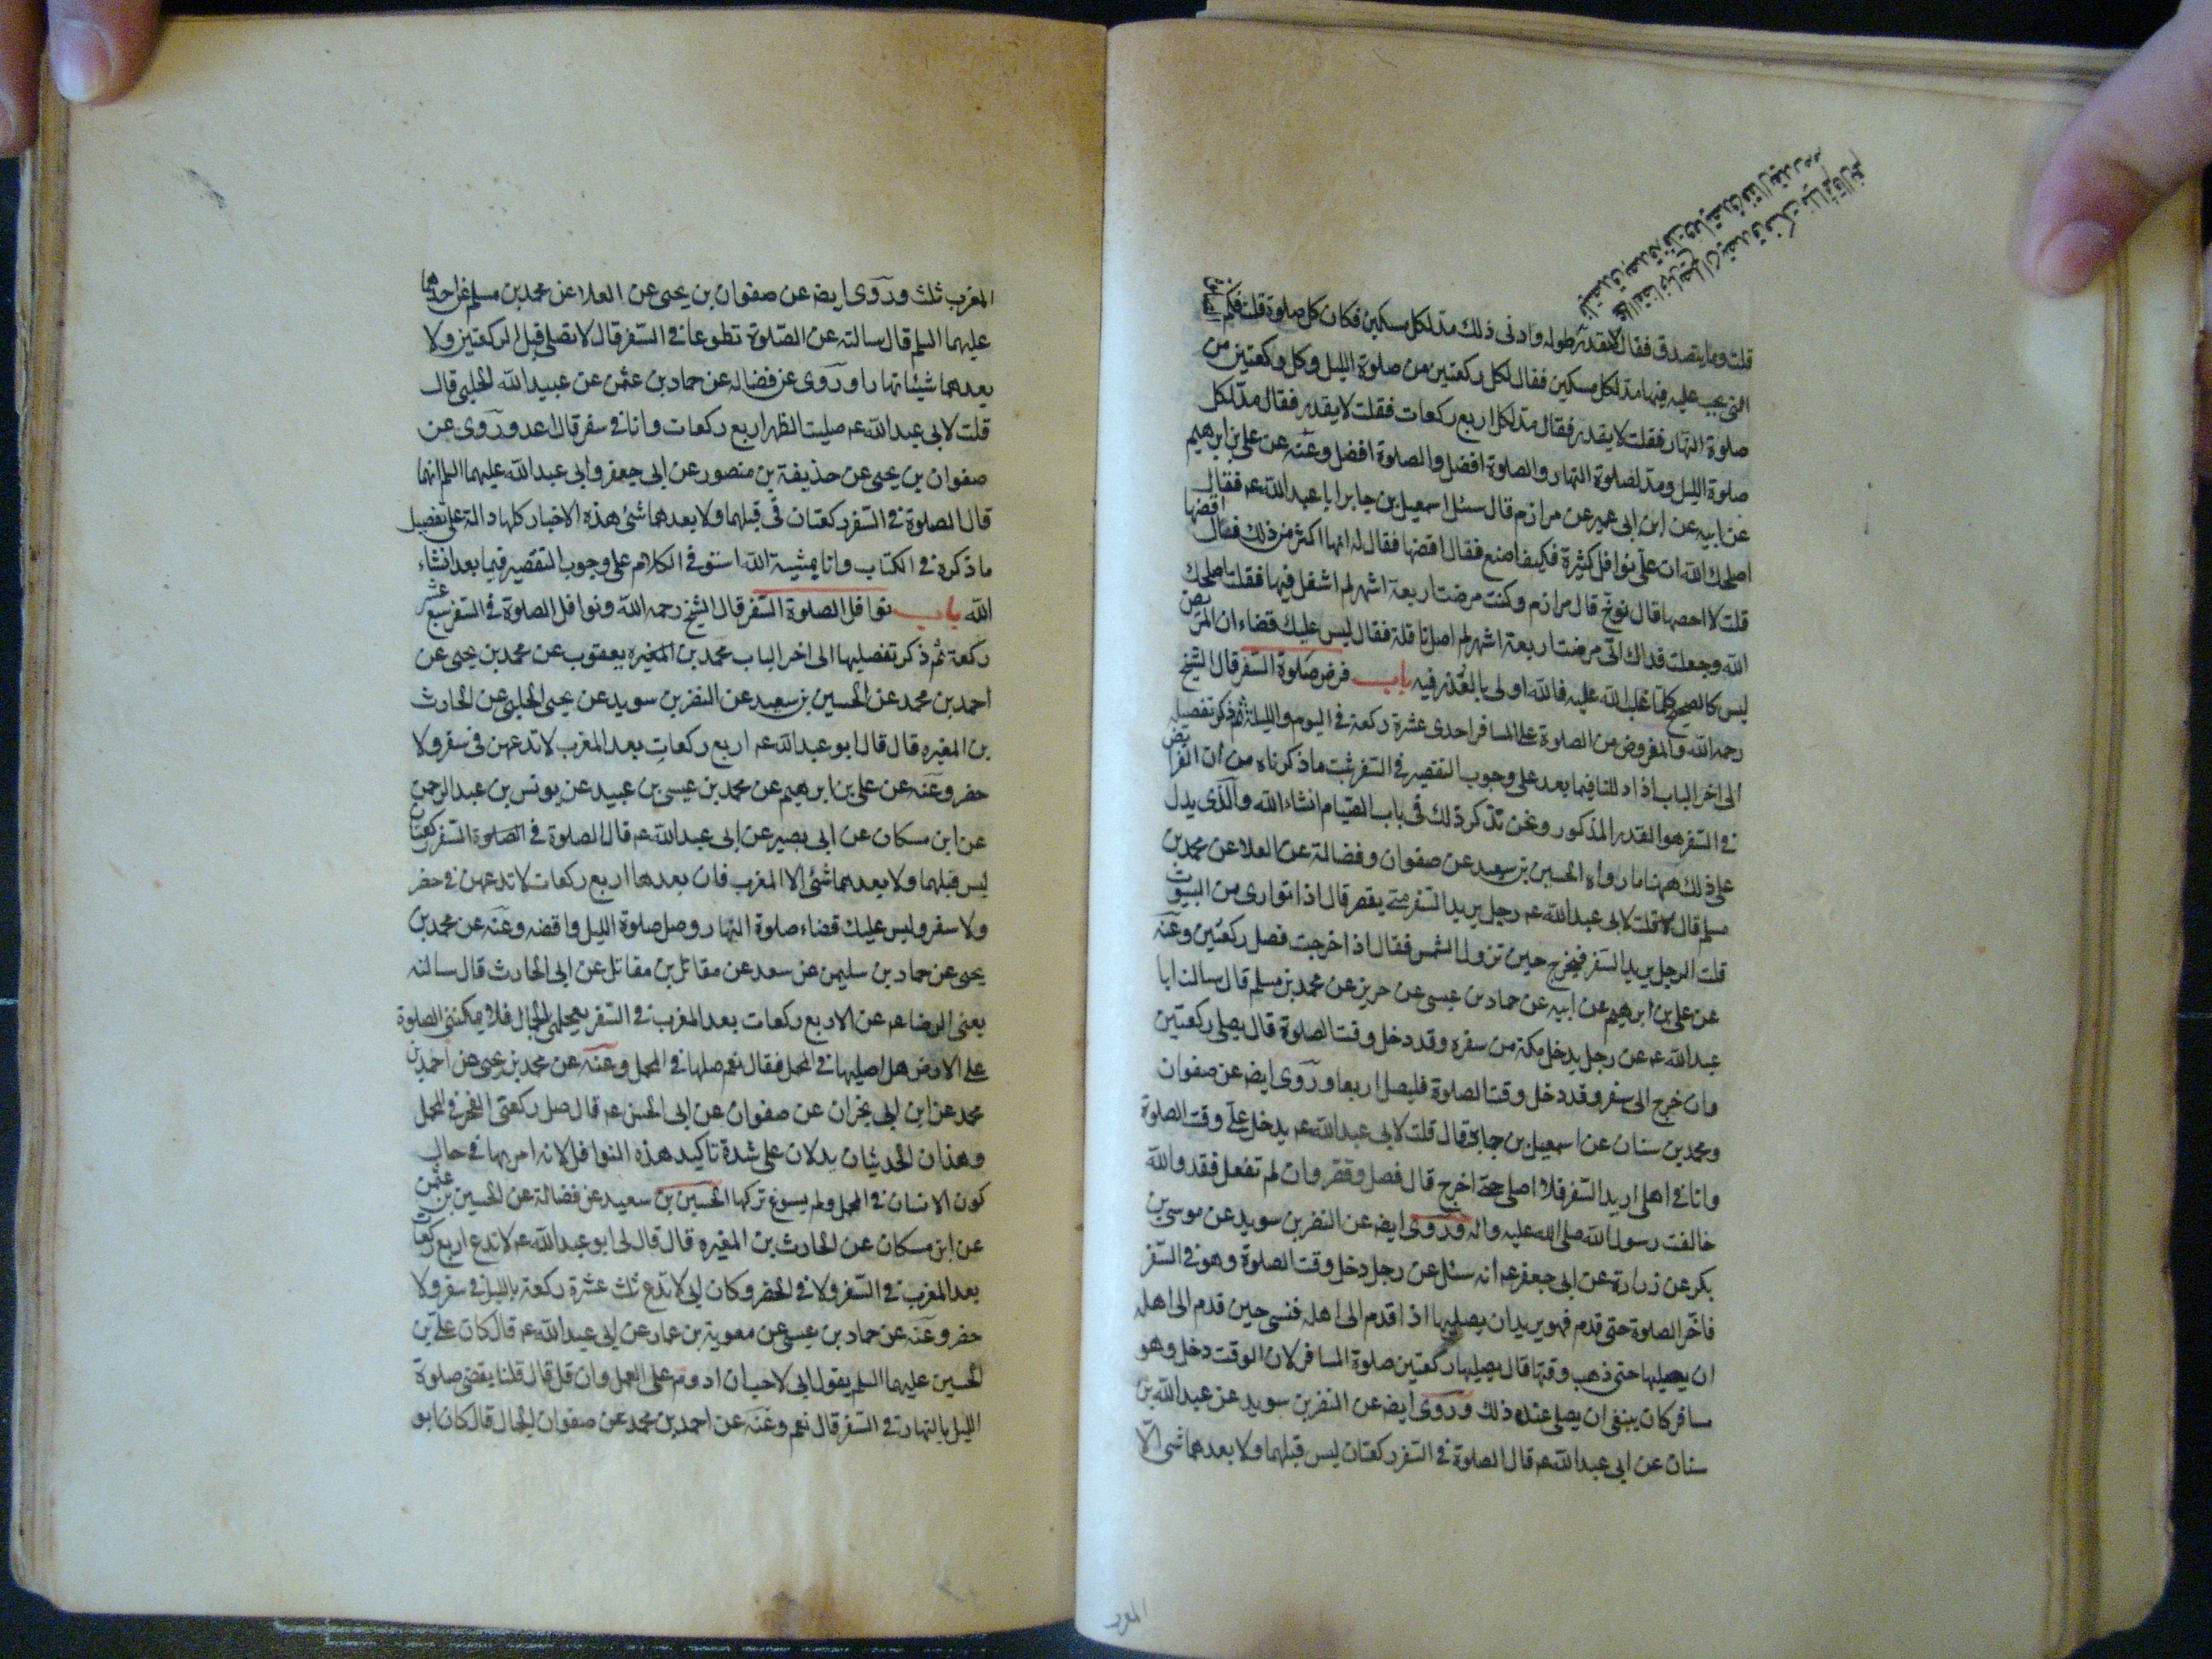 قلت وما يتصدق فقال لا يقدر طوله وادنى ذلك مد لكل مسكين فكان كل صلوة قلت فكم
التى يجب عليه فيها مد لكل مسكين فقال لكل ركعتين من صلوة الليل وكل ركعتين من
صلوة النهار فقلت لا يقدر فقال مد لكل اربع ركعات فقلت لا يقدر فقال مد لكل
صلوة الليل ومد لصلوة النهار والصلوة افضل والصلوة افضل وعنه عن على بن ابرهيم
عن ابيه عن ابن ابى عمير عن مرازم قال سئل اسمعيل بن جابر ابا عبد الله عم فقال
اصلحك الله ان على نوافل كثيرة فكيف اصنع فقال اقضها فقال له انها اكثر من ذلك فقال اقضها
قلت لا احصيها قال توخ قال مرازم وكنت مرضت اربعة اشهر لم اشفل فيها فقلت اصلحك
الله وجعلت فداك انى مرضت اربعة اشهر لم اصل نافلة فقال ليس عليك قضاء ان المريض
ليس كالصحيح كلما غلب الله عليه فالله اولى بالعذر فيه باب فرض صلوة السفر قال الشيخ
رحمه الله والمفروض من الصلوة على المسافر احدى عشرة ركعة فى اليوم والليلة ثم ذكر تفصيله
الى اخر الباب اذا دللنا فيما بعد على وجوب التقصير فى السفر ثبت ما ذكرناه من ان الفرايض
فى السفر هو القدر المذكور ونحن نذكر ذلك فى باب الصيام انشاء الله والذى يدل
على ذلك ههنا ما رواه الحسين بن سعيد عن صفوان وفضالة عن العلا عن محمد بن
مسلم قال قلت لابى عبد الله عم رجل يريد السفر متى يقصر قال اذا توارى من البيوت
قلت الرجل يريد السفر فيخرج حين تزول الشمس فقال اذا خرجت فصل ركعتين وعنه
عن على بن ابرهيم عن ابيه عن حماد بن عيسى عن حريز عن محمد بن مسلم قال سالت ابا
عبد الله عم عن رجل يدخل مكة من سفره وقد دخل وقت الصلوة قال يصلى ركعتين
وان خرج الى سفر وقد دخل وقت الصلوة فليصل اربعا وروى ايضه عن صفوان
ومحمد بن سنان عن اسمعيل بن جابر قال قلت لابى عبد الله عم يدخل على وقت الصلوة
وانا فى اهلى اريد السفر فلا اصلى حتى اخرج قال فصل وقصر وان لم تفعل فقد والله
خالفت رسول الله صلى الله عليه واله وروى ايضه عن النضر بن سويد عن موسى بن
بكر عن زرارة عن ابى جعفر عم انه سئل عن رجل دخل وقت الصلوة وهو فى السفر
فاخر الصلوة حتى قدم فهو يريد ان يصليها اذا قدم الى اهله فنسى حين قدم الى اهله
ان يصليها حتى ذهب وقتها قال يصليها ركعتين صلوة المسافر لان الوقت دخل وهو
مسافر كان ينبغى ان يصلى عند ذلك وروى ايضه عن النضر بن سويد عن عبد الله بن
سنان عن ابى عبد الله عم قال الصلوة فى السفر ركعتان ليس قبلهما ولا بعدهما شئ الا
المغرب ثلث وروى ايضه عن صفوان بن يحيى عن العلا عن محمد بن مسلم عن احدهما
عليهما السلم قال سالته عن الصلوة تطوعا فى السفر قال لا تصلى قبل الركعتين ولا
بعدهما شيئا نهارا وروى عن فضاله عن حماد بن عثمن عن عبيد الله الحلبى قال
قلت لابى عبد الله عم صليت الظهر اربع ركعات وانا فى سفر قال اعد وروى عن
صفوان بن يحيى عن حذيفة بن منصور عن ابى جعفر وابى عبد الله عليهما السلم انهما
قالا الصلوة فى السفر ركعتان فى قبلهما ولا بعدهما شئ هذه الاخبار كلها دالة على تفصيل
ما ذكره فى الكتاب وانا بمشية الله استوفى الكلام على وجوب التقصير فيما بعد انشاء
الله باب نوافل الصلوة السفر قال الشيخ رحمه الله ونوافل الصلوة فى السفر سبع عشر
ركعة ثم ذكر تفصيلها الى اخر الباب محمد بن المغيره يعقوب عن محمد بن يحيى عن
احمد بن محمد عن الحسين بن سعيد عن النضر بن سويد عن يحيى الحلبى عن الحارث
بن المغيره قال قال ابو عبد الله عم اربع ركعات بعد المغرب لا تدعهن فى سفر ولا
حضر وعنه عن على بن ابرهيم عن محمد بن عيسى بن عبيد عن يونس بن عبد الرحمن
عن ابن مسكان عن ابى بصير عن ابى عبد الله عم قال الصلوة فى الصلوة السفر ركعتان
ليس قبلهما ولا بعدهما شئ الا المغرب فان بعدها اربع ركعات لا تدعهن فى حضر
ولا سفر وليس عليك قضاء صلوة النهار وصل صلوة الليل واقضه وعنه عن محمد بن
يحيى عن حماد بن سليمن عن سعد عن مقاتل بن مقاتل عن ابى الحارث قال سالته
يعنى الرضا عم عن الاربع ركعات بعد المغرب فى السفر يعجلنى الجمال فلا يمكننى الصلوة
على الارض هل اصليها فى المحمل فقال نعم صلها فى المحمل وعنه عن محمد بن يحيى عن احمد بن
محمد عن ابن ابى نجران عن صفوان عن ابى الحسن عم قال صل ركعتى الفجر فى المحمل
وهذان الحديثان يدلان على شدة تاكيد هذه النوافل لانه امر بها فى حال
كون الانسان فى المحمل ولم يسوغ تركها الحسين بن سعيد عن فضالة عن الحسين بن عثمن
عن ابن مسكان عن الحارث بن المغيره قال قال لى ابو عبد الله عم لا تدع اربع ركعات
بعد المغرب فى السفر ولا فى الحضر وكان ابى لا تدع ثلث عشرة ركعة بالليل فى سفر ولا
حضر وعنه عن حماد بن عيسى عن معوية بن عمار عن ابى عبد الله عم قال كان على بن
الحسين عليهما السلم يقول انى لاحب ان ادوم على العمل وان قل قال قلنا يقضى صلوة
الليل بالنهار فى السفر قال نعم وعنه عن احمد بن محمد عن صفوان الجمال قال كان ابو